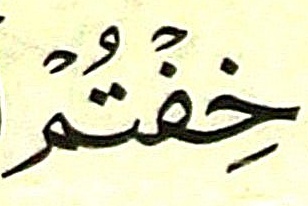 خِفْتُمْ